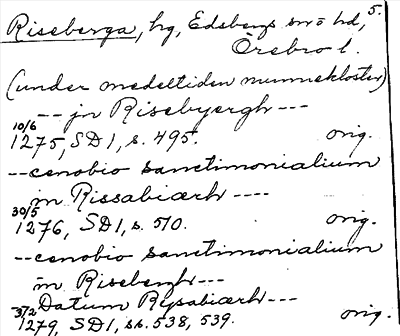 Riseberga, hg, Edsbergs sn o hd, 5.
Örebro l.
(under medeltiden nunnekloster)
-- jn Risebyergh ---
10/6
1275, SD1, s. 495. orig.
-- cenobio sanctimonialium
in Rissabiærh ----
30/5
1276, SD1, s. 510. orig.
-- cenobio sanctimonialium
in Risebergh --
-- Datum Rysabiærh ---
3/2
1279, SD1, ss. 538, 539. orig.